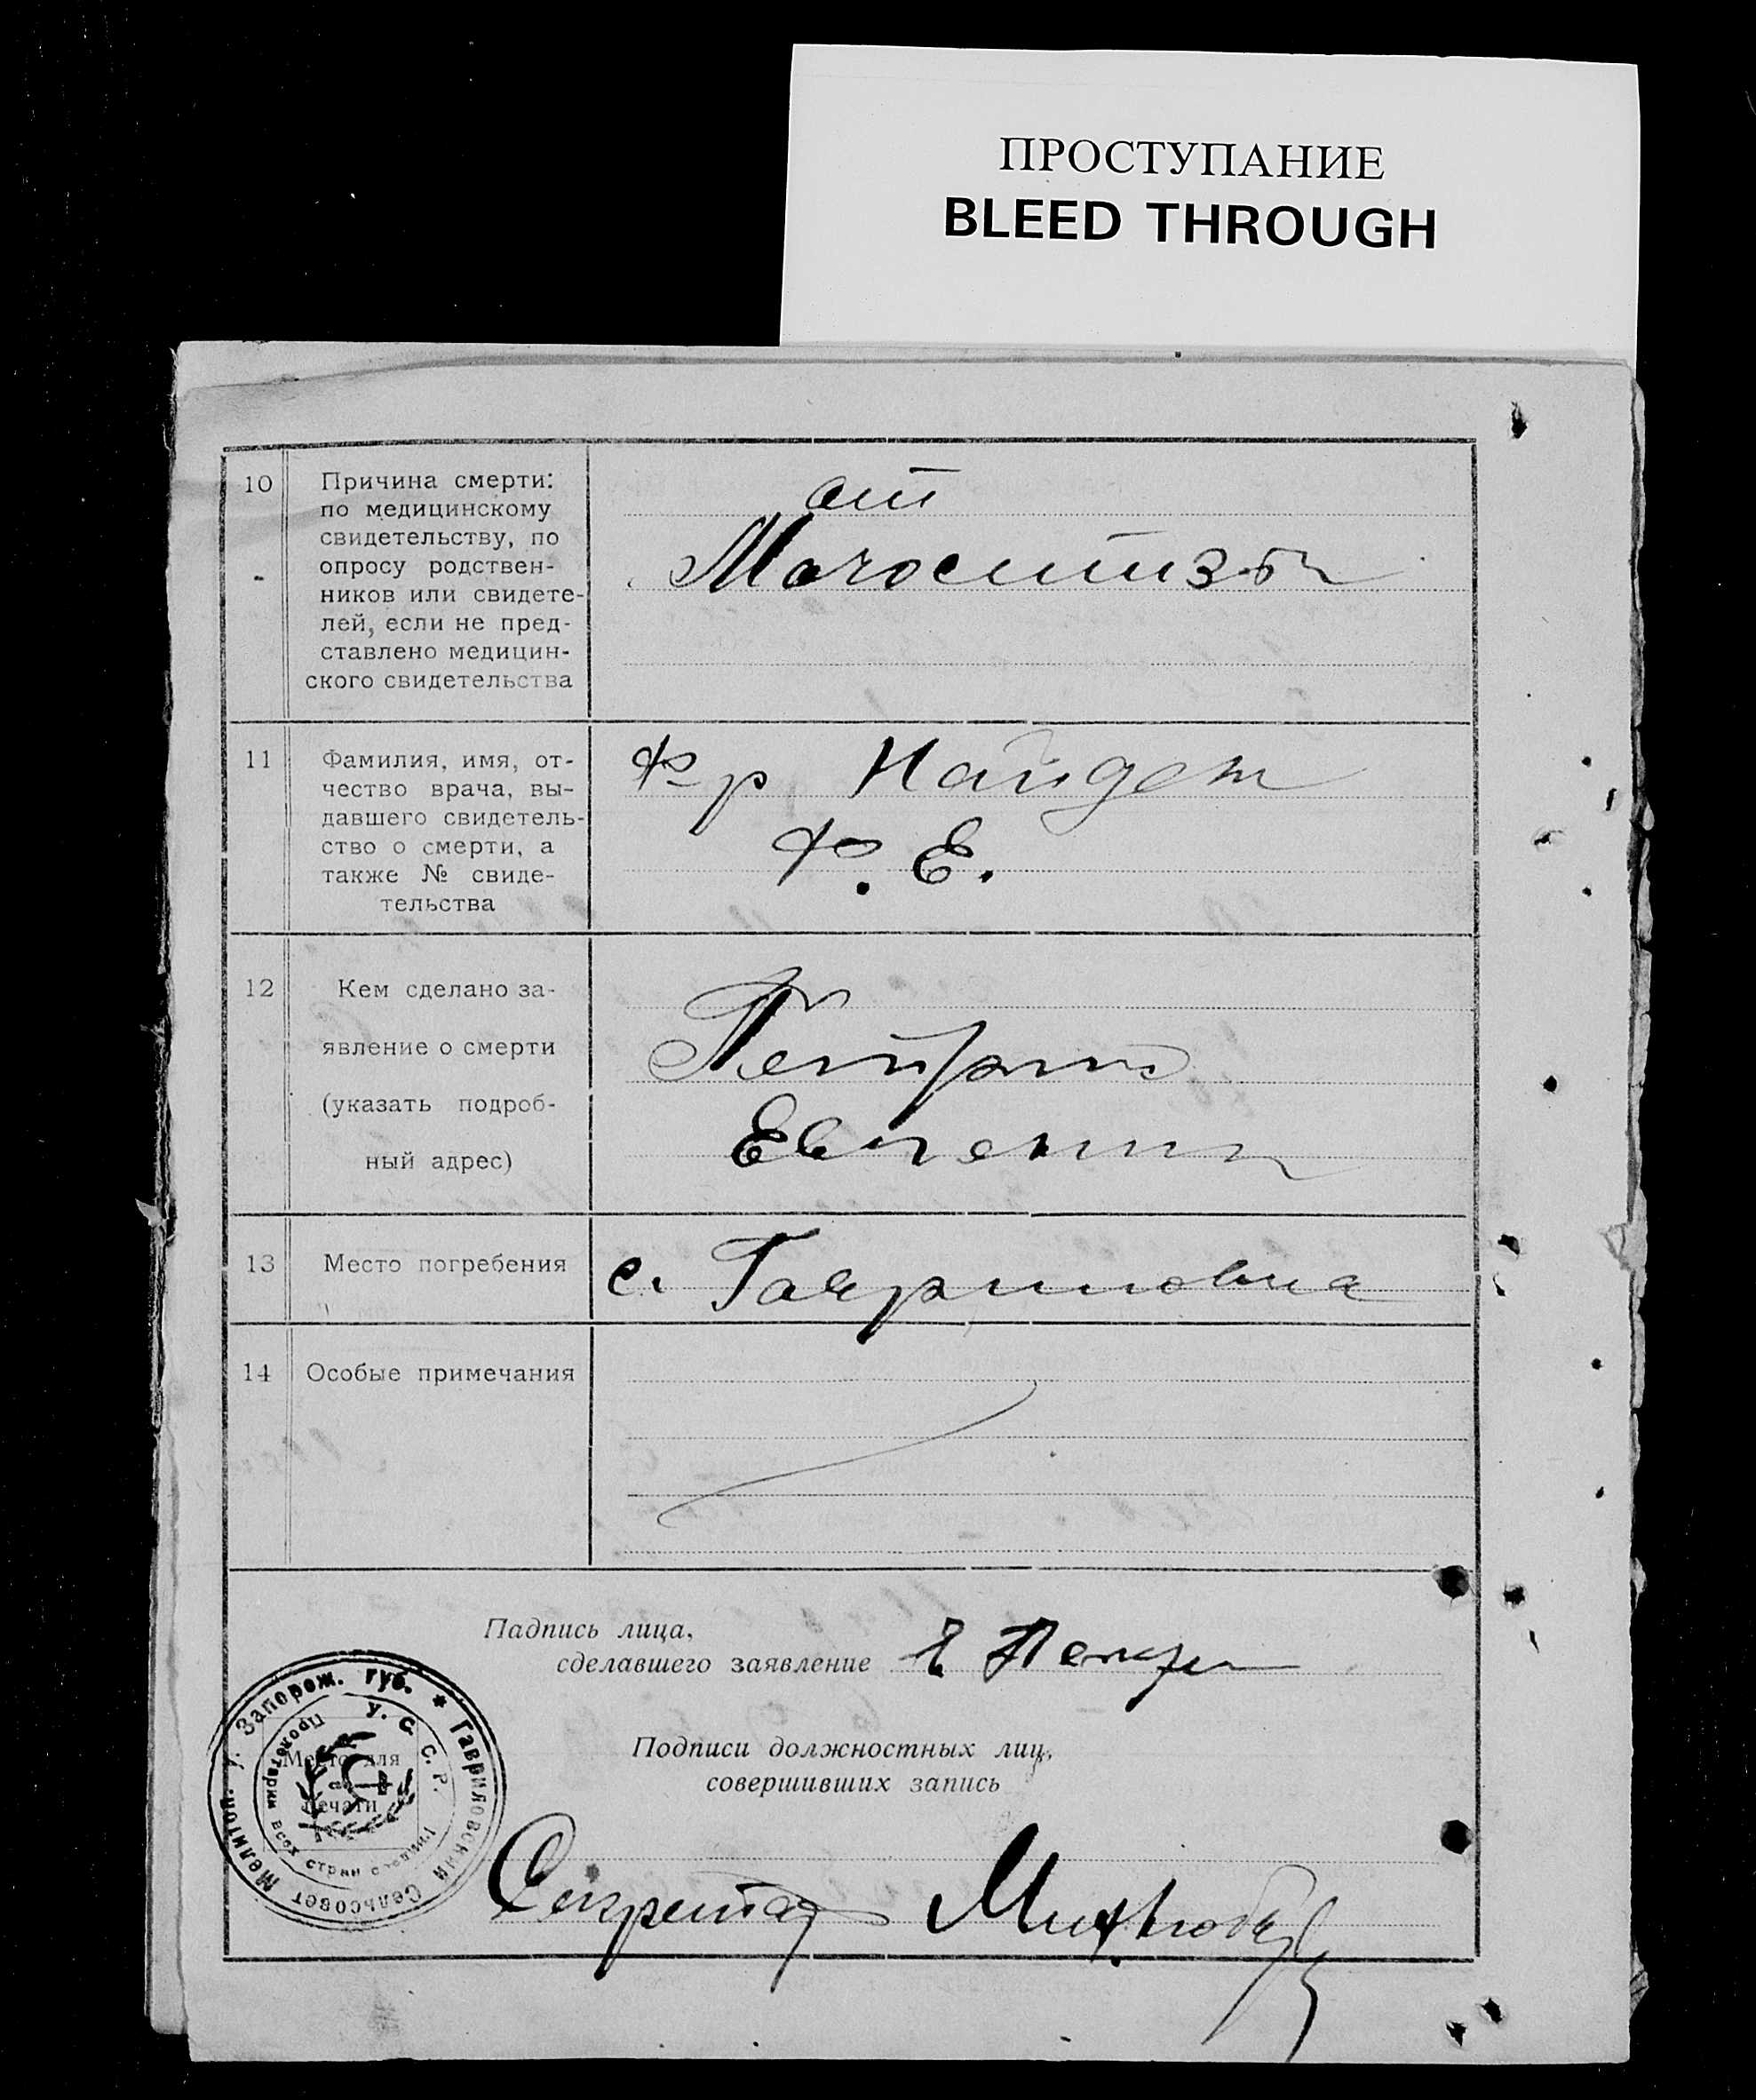 ПРОСТУПАНИЕ
BLEED THROUGH
10
Причина смерти:
по медицинскому
свидетельству, по
опросу родствен-
ников или свидете-
лей, если не пред-
ставлено медицин-
ского свидетельства
от
11
Фамилия, имя, от-
чество врача, вы-
давшего свидетель-
ство о смерти, а
также № свиде-
тельства
Ф. Е.
12
Кем сделано за-
явление о смерти
(указать подроб-
ный адрес)
Евгений
13
Место погребения
с. Гавриловка
14
Особые примечания
Падпись лица,
сделавшего заявление
Подписи должностных лиц,
совершивших запись
Место для
печати
Мелитоп. у. Запорож. губ. * Гавриловский Сельсовет
У. С. С. Р.
Пролетарии всех стран
Секретар